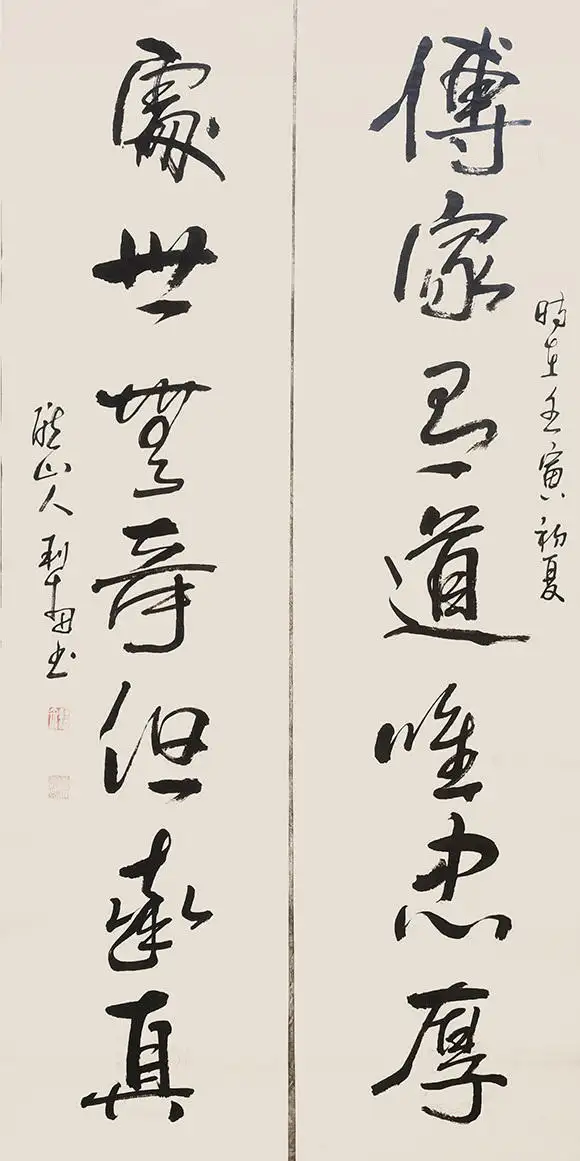 時在壬寅初夏
傳家有道唯忠厚
處世無奇但率真
山人 书